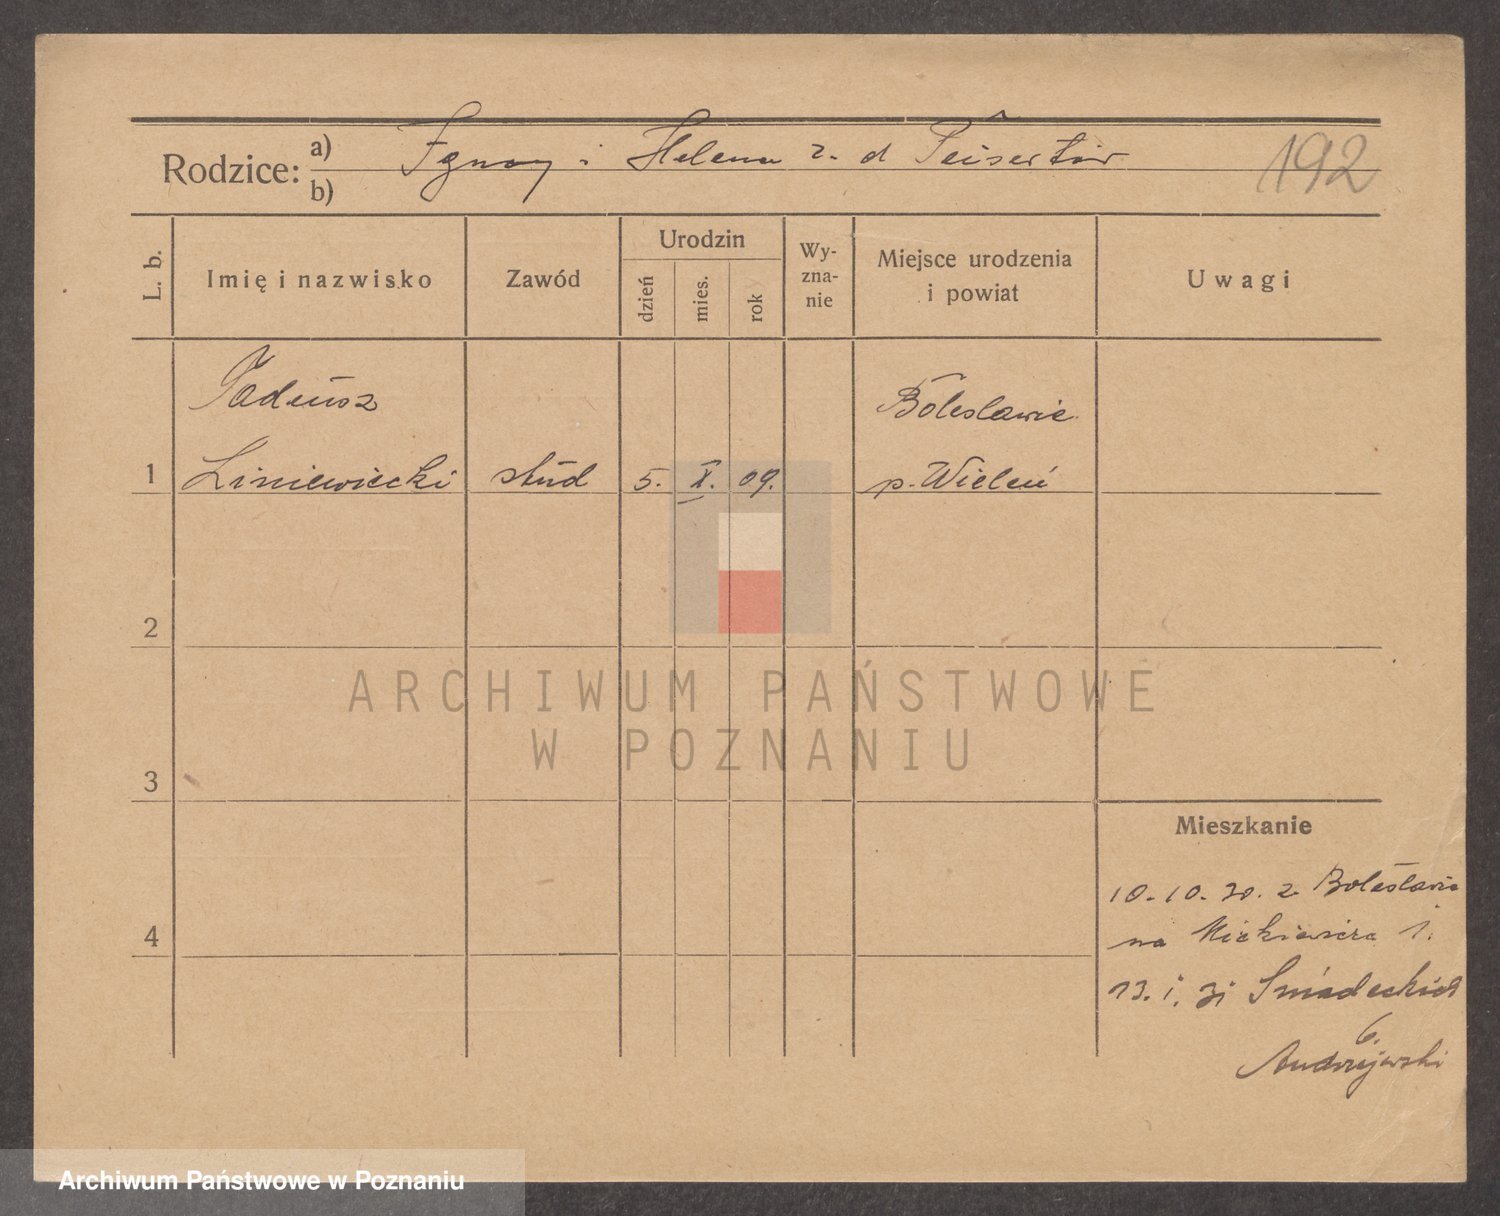 Rodzice:
a) Ignacy i Helena z. d Teusertów
b)
192
L. b.
Imię i nazwisko
Zawód
Urodzin
dzień
mies.
rok
Wy-
zna-
nie
Miejsce urodzenia
i powiat
Uwagi
Tadeusz
Bolesławie
1 Liniewiecki stud 5. X. 09. p. Wieleń
2
ARCHIWUM PAŃSTWOWE
W POZNANIU
3
Mieszkanie
10.10.30. z Bolesławia
4
na Mickiewicza 1.
13. i. 31 Śniadeckich
6.
Andrzejewski
Archiwum Państwowe w Poznaniu